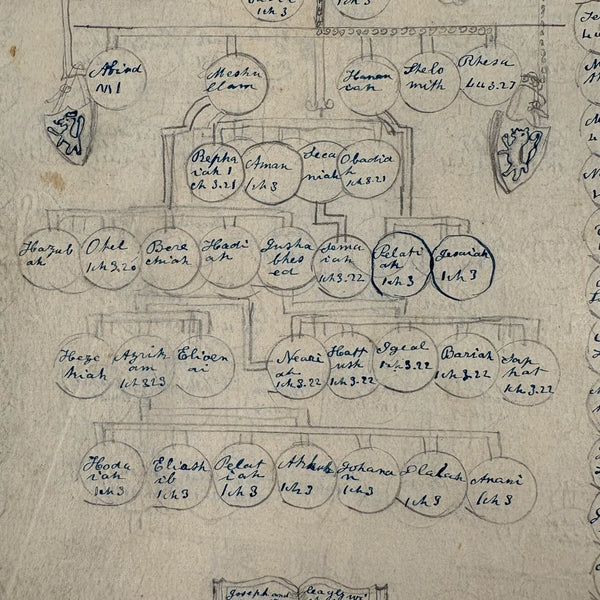 1ch 3
1ch 3
Abiud
M1
Meshu
llam
Hanan
iah
Shelo
mith
Rhesa
Lu 3.27
Repha
iah 1
ch 3.21
Arnan
1ch 3
Obadia
h
1ch 3.21
niah
Hazub
ah
Ohel
1ch 3.20
Bere
chiah
Hadi
ah
Jusha
bhes
ed
Sema
iah
1ch 3.22
Pelati
ah
1ch 3
Jesaiah
1ch 3
Heze
kiah
Azrik
am
1ch 3 23
Elioen
ai
Neari
ah
1ch 3.22
Hatt
ush
1ch 3.22
Igeal
1ch 3.22
Bariah
1ch 3.22
Sap
hat
1ch 3.22
Hoda
iah
1ch 3
Eliash
ib
1ch 3
Pelat
iah
1ch 3
Akkub
1ch 3
Johana
n
1ch 3
Dlaiah
1ch 3
Anani
1ch 3
Joseph and